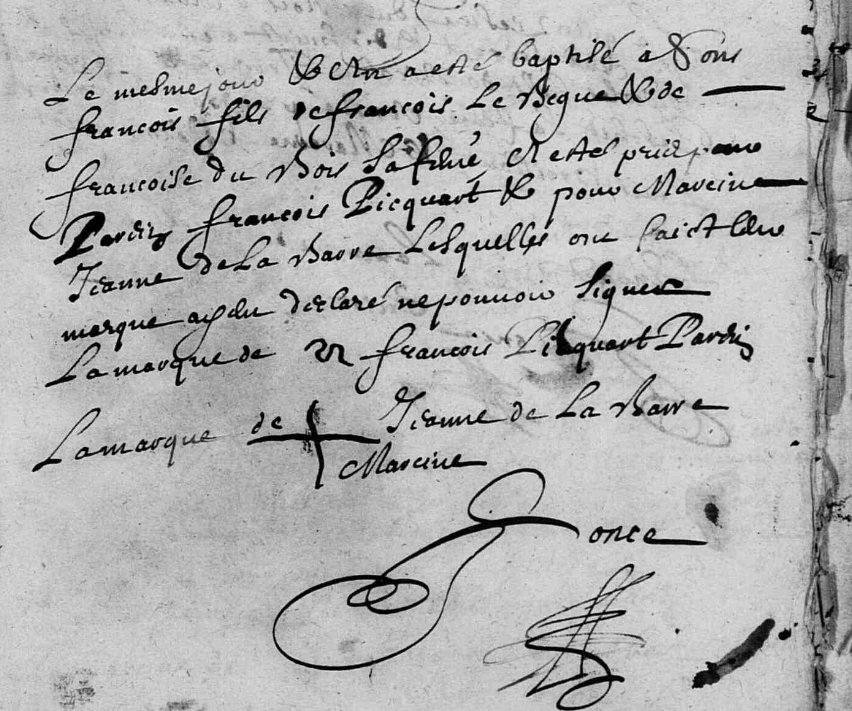 Le mesme jour & An a esté baptisé a Fons
francois fils de francois Le Begue & de
francoise du Bois sa feme, Et estés pris pour
Parein francois Picquart & pour Mareine
Jeanne de La Barre Lesquelles ont faict leur
marque ayant declaré ne pouvoir signer
La marque de francois Picquart Parein
La marque de Jeanne de La Barre
Mareine
Ponce